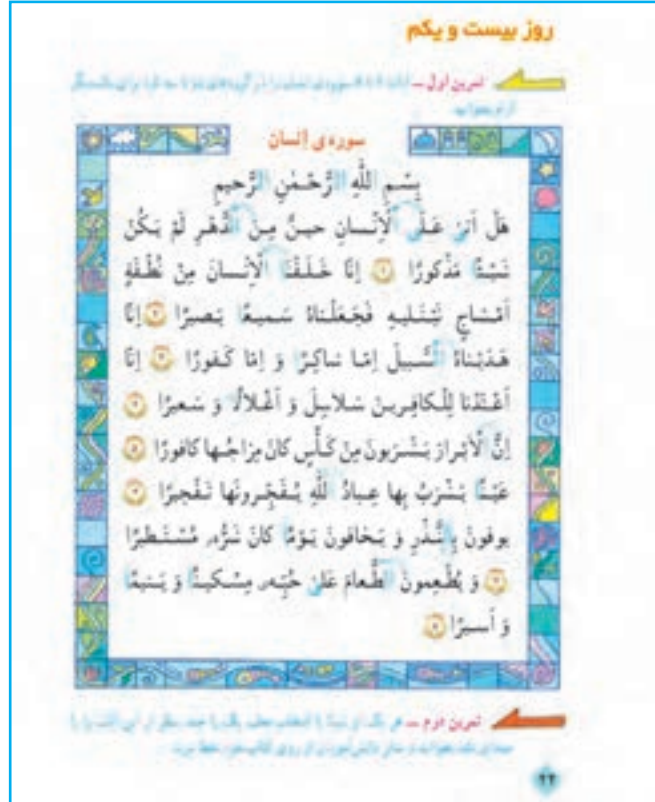 روز بیست و یکم
تمرین اول ــ
سوره‌ی اِنسان
بِسْمِ اللَّهِ الرَّحْمٰنِ الرَّحیمِ
هَلْ اَتىٰ عَلَى الْاِنسانِ حینٌ مِنَ الدَّهْرِ لَمْ یَکُنْ
شَیْئًا مَذْکورًا ۱ اِنّا خَلَقْنَا الْاِنسانَ مِنْ نُطْفَةٍ
اَمْشاجٍ نَبْتَلیهِ فَجَعَلْناهُ سَمیعًا بَصیرًا ۲ اِنّا
هَدَیْناهُ السَّبیلَ اِمّا شاکِرًا وَ اِمّا کَفورًا ۳ اِنّا
اَعْتَدْنا لِلْکافِرینَ سَلاسِلَ وَ اَغْلالًا وَ سَعیرًا ۴
اِنَّ الْاَبْرارَ یَشْرَبونَ مِنْ کَأْسٍ کانَ مِزاجُها کافورًا ۵
عَیْنًا یَشْرَبُ بِها عِبادُ اللَّهِ یُفَجِّرونَها تَفْجیرًا ۶
یوفونَ بِالنَّذْرِ وَ یَخافونَ یَوْمًا کانَ شَرُّهُ مُسْتَطیرًا
۷ وَ یُطْعِمونَ الطَّعامَ عَلىٰ حُبِّهِ مِسْکینًا وَ یَتیمًا
وَ اَسیرًا ۸
تمرین دوم ــ
۲۲